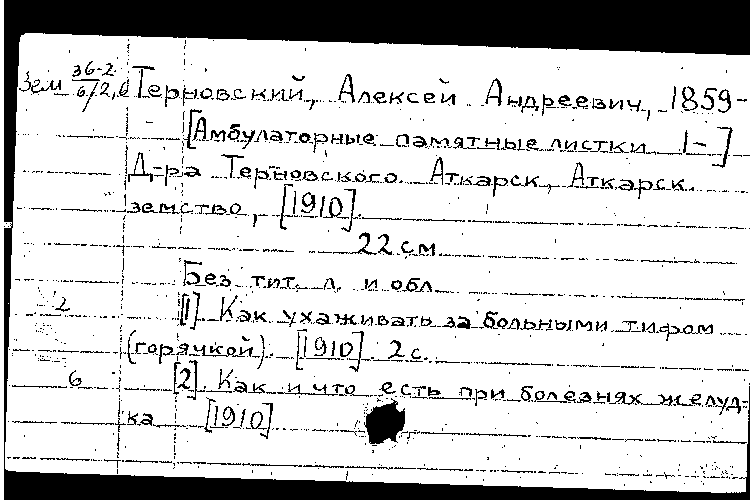 Зем 36-2 6/2,6 Терновский, Алексей Андреевич, 1859-
[Амбулаторные памятные листки 1- ]
Д-ра Терновского. Аткарск, Аткарск.
земство, [1910].
22 см.
Без тит. л. и обл.
2 [1]. Как ухаживать за больными тифом
(горячкой). [1910]. 2 с.
6 [2]. Как и что есть при болезнях желуд-
ка [1910].